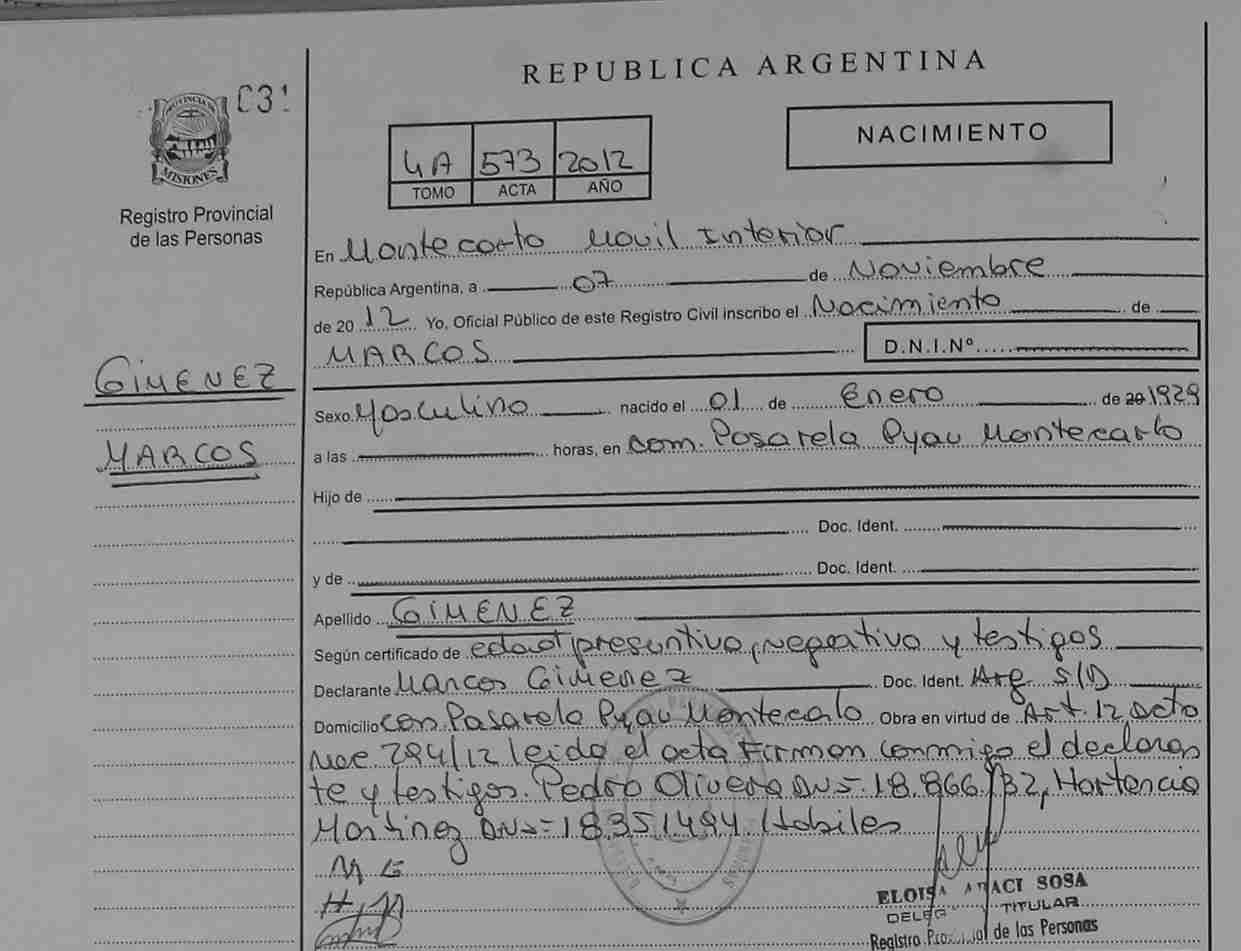 REPUBLICA ARGENTINA
031
PROVINCIA DE
MISIONES
Registro Provincial
de las Personas
4A 573 2012
TOMO ACTA AÑO
NACIMIENTO
En Montecarlo Movil Interior
República Argentina, a 07 de Noviembre
de 20 12 Yo, Oficial Público de este Registro Civil inscribo el Nacimiento de
MARCOS D.N.I.Nº
GIMENEZ
MARCOS
Sexo Masculino nacido el 01 de Enero de 20 1929
a las horas, en com. Pasarela Pyau Montecarlo
Hijo de
Doc. Ident.
y de Doc. Ident.
Apellido GIMENEZ
Según certificado de edad presuntiva, negativo y testigos
Declarante Marcos Gimenez Doc. Ident. Arg. S/D
Domicilio com. Pasarela Pyau Montecarlo Obra en virtud de Art. 12, acta
284/12 leida el acta Firman conmigo el declaran
te y testigos. Pedro Olivera DNI 18.866.132, Hortencia
Martinez DNI 18351494. Habiles
M G
H, M
ELOISA ARACI SOSA
TITULAR
Registro Provincial de las Personas